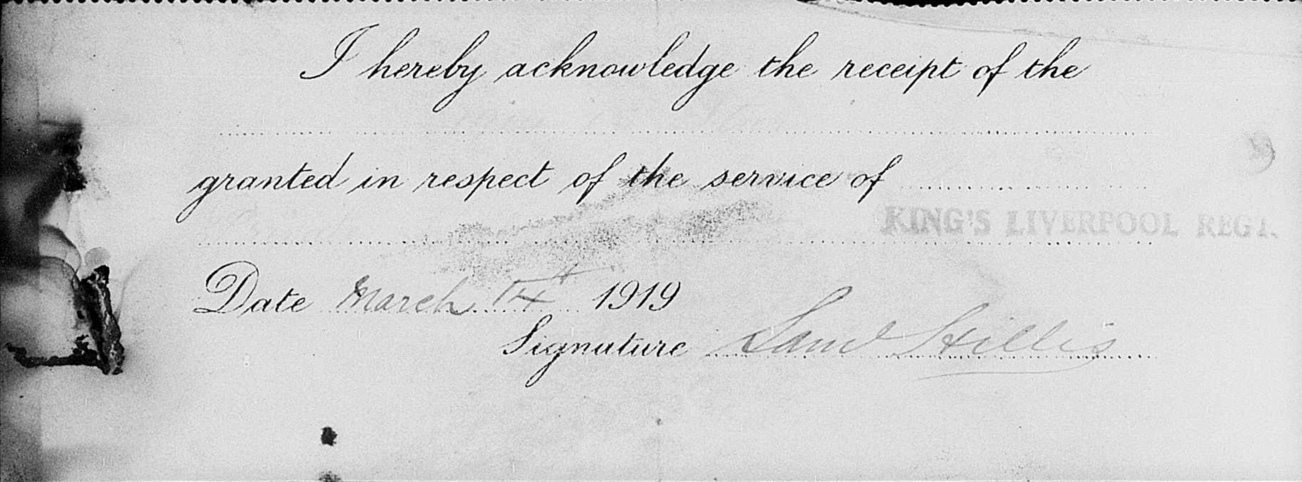 I hereby acknowledge the receipt of the
granted in respect of the service of
KING'S LIVERPOOL REGT.
Date March 14th 1919
Signature Saml Hillis